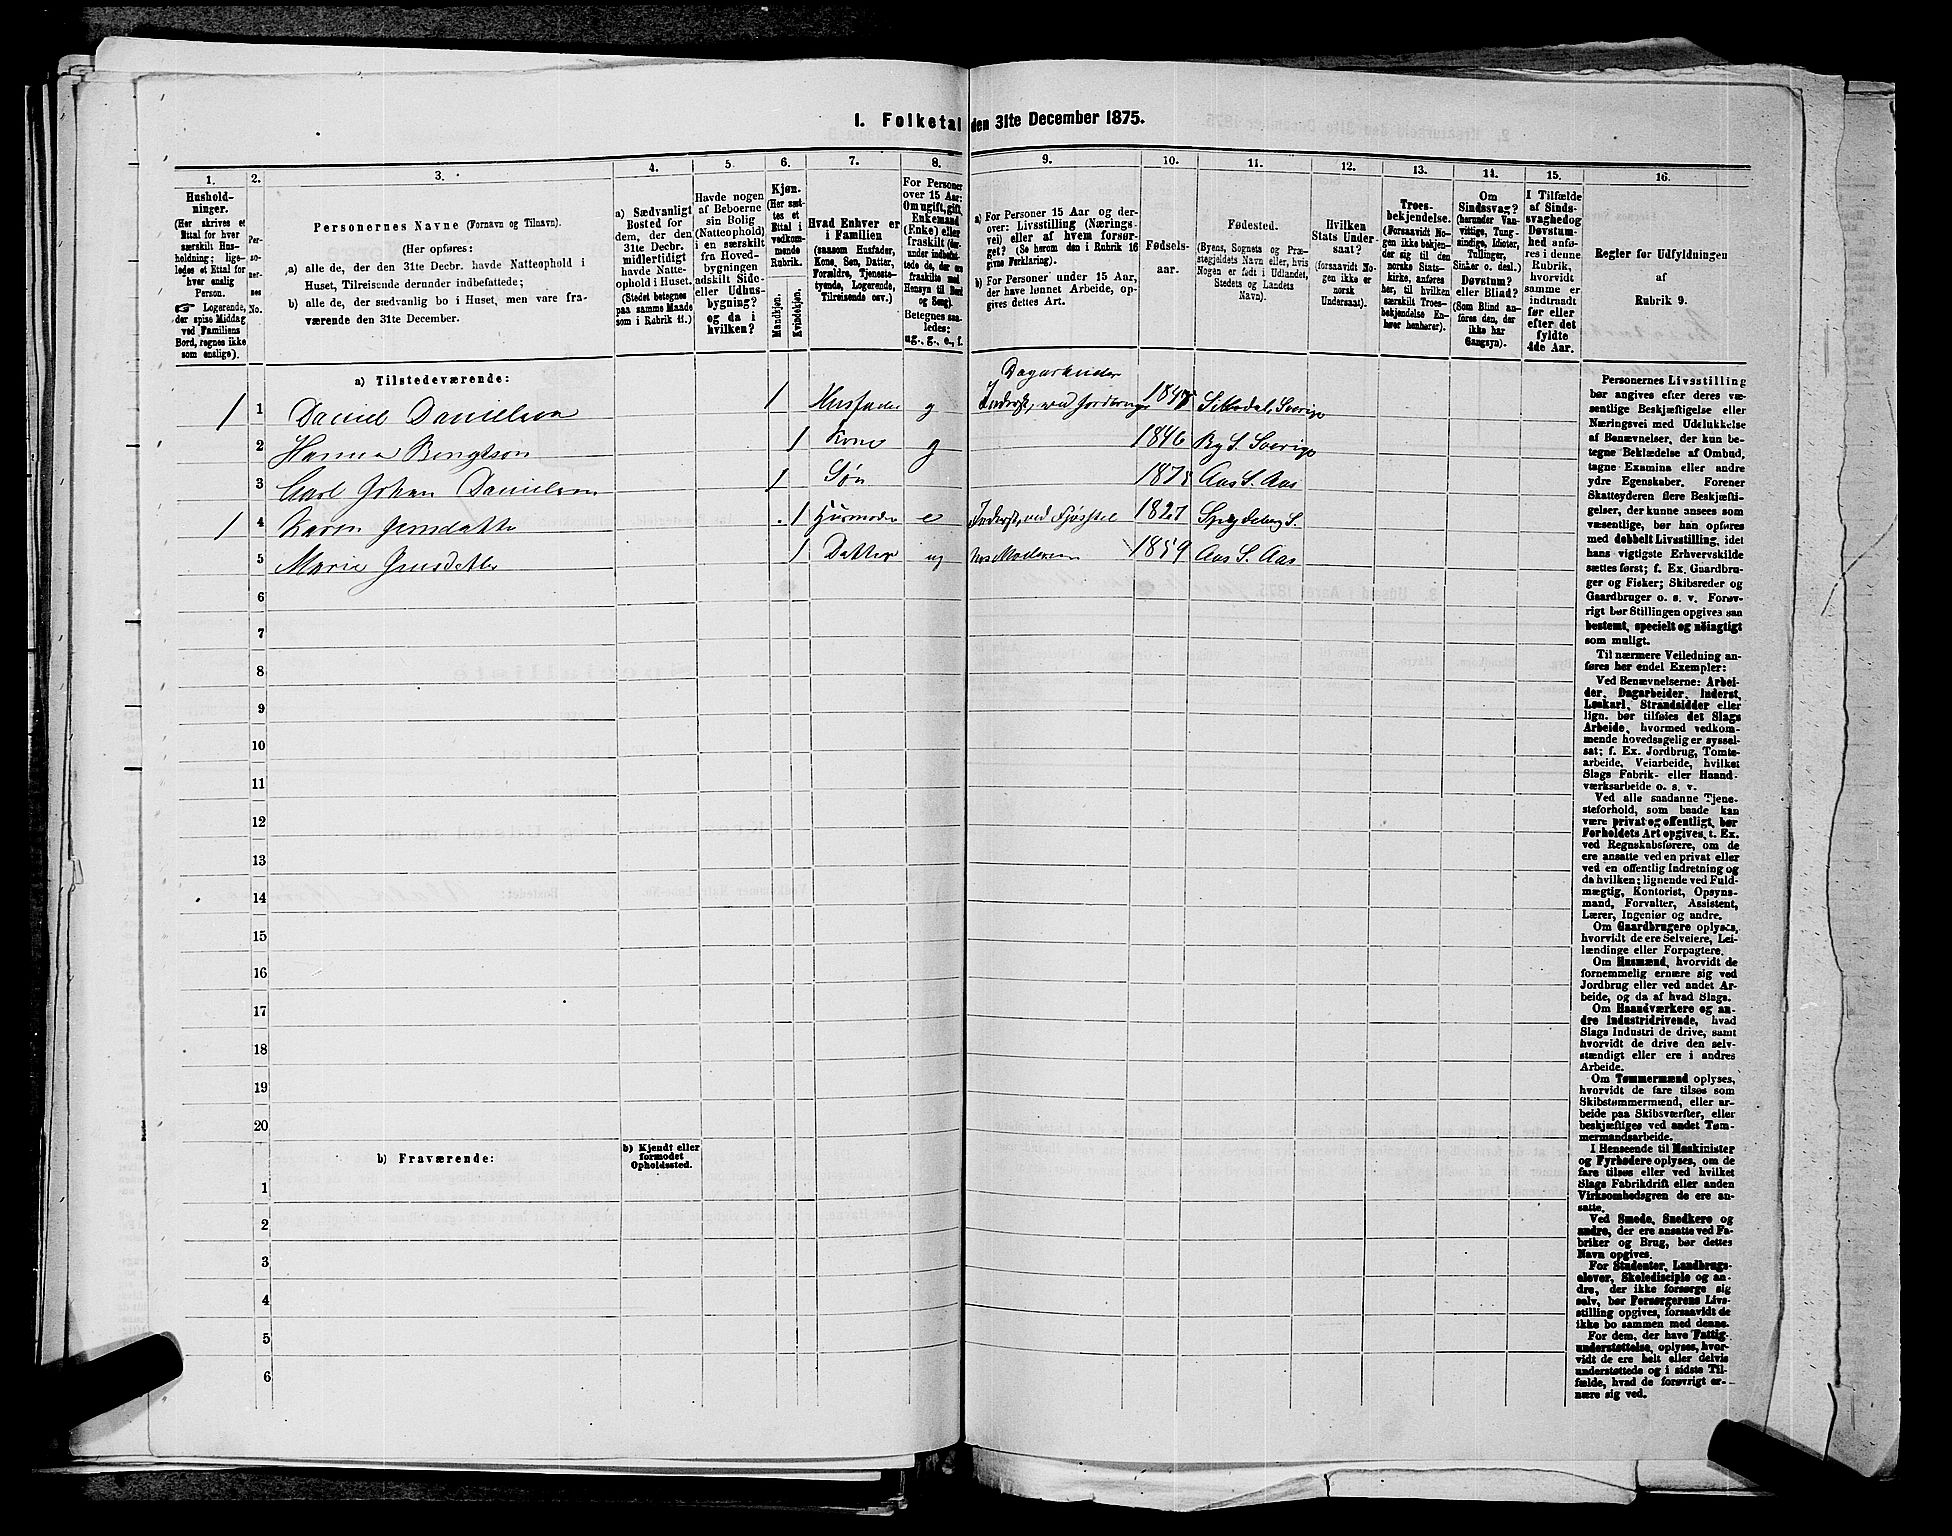 I. Folketal den 31te December 1875.
1. 2. 3. 4. 5. 6. 7. 8. 9. 10. 11. 12. 13. 14. 15. 16.
Hushold-
ninger.
(Her skrives et
Ettal for hver
særskilt Hus-
holdning; lige-
ledes et Ettal for
hver enslig
Person.
☞ Logerende,
der spise Middag
ved Familiens
Bord, regnes ikke
som enslige).
Per-
so-
ner-
nes
No.
Personernes Navne (Fornavn og Tilnavn).
(Her opføres:
a) alle de, der den 31te Decbr. havde Natteophold i
Huset, Tilreisende derunder indbefattede;
b) alle de, der sædvanlig bo i Huset, men vare fra-
værende den 31te December.
a) Sædvanligt
Bosted for
dem, der den
31te Decbr.
midlertidigt
havde Natte-
ophold i Huset.
(Stedet betegnes
paa samme Maade
som i Rubrik 11.)
Havde nogen
af Beboerne
sin Bolig
(Natteophold)
i en særskilt
fra Hoved-
bygningen
adskilt Side-
eller Udhus-
bygning?
og da i
hvilken?
Kjøn.
(Her sæt-
tes et
Ettal i
vedkom-
mende
Rubrik.
Mandkjøn.
Kvindekjøn.
Hvad Enhver er
i Familien
(saasom Husfader,
Kone, Søn, Datter,
Forældre, Tjeneste-
tyende, Logerende,
Tilreisende osv.)
For Personer
over 15 Aar:
Om ugift, gift,
Enkemand
(Enke) eller
fraskilt (der-
under indbefat-
tede de, der ere
fraskilte med
Hensyn til Bord
og Seng).
Betegnes saa-
ledes:
ug., g., e., f.
a) For Personer 15 Aar og der-
over: Livsstilling (Nærings-
vei) eller af hvem forsør-
get? (Se herom den i Rubrik 16
givne Forklaring).
b) For Personer under 15 Aar,
der have lønnet Arbeide, op-
gives dettes Art.
Fødsels-
aar.
Fødested.
(Byens, Sognets og Præ-
stegjeldets Navn eller, hvis
Nogen er født i Udlandet,
Stedets og Landets
Navn).
Hvilken
Stats Under-
saat?
(forsaavidt No-
gen ikke er
norsk
Undersaat).
Troes-
bekjendelse.
(Forsaavidt No-
gen ikke bekjen-
der sig til den
norske Stats-
kirke, anføres
her, til hvilken
særskilt Troes-
bekjendelse En-
hver henhører).
Om
Sindssvag?
(herunder Van-
vittige, Tung-
sindige, Idioter,
Tullinger,
Sinker o. desl.)
Døvstum?
eller Blind?
(Som Blind an-
føres den, der
ikke har
Gangsyn).
I Tilfælde
af Sinds-
svaghed og
Døvstum-
hed anfø-
res i denne
Rubrik,
hvorvidt
samme er
indtraadt
før eller
efter det
fyldte
4de Aar.
Regler for Udfyldningen
af
Rubrik 9.
a) Tilstedeværende:
Dagarbeider
1 1 Daniel Danielson 1 Husfader g Inderst, ved Jordbrug Sillodal, Sverige
2 Hanna Bengtson 1 Kone g 1846 By S. Sverige
3 Carl Johan Danielsen 1 Søn Aas S. Aas
1 4 Karen Jensdatter 1 Husmoder e Inderst, ved Fjøsstel 1827 Spydeberg S.
5 Marie Jensdatter 1 Datter ug hos Moderen 1859 Aas S. Aas
6
7
8
9
10
11
12
13
14
15
16
17
18
19
20
b) Fraværende:
b) Kjendt eller
formodet
Opholdssted.
1
2
3
4
5
6
Personernes Livsstilling
bør angives efter deres væ-
sentlige Beskjæftigelse eller
Næringsvei med Udelukkelse
af Benævnelser, der kun be-
tegne Beklædelse af Ombud,
tagne Examina eller andre
ydre Egenskaber. Forener
Skatteyderen flere Beskjæfti-
gelser, der kunne ansees som
væsentlige, bør han opføres
med dobbelt Livsstilling, idet
hans vigtigste Erhvervskilde
sættes først; f. Ex. Gaardbru-
ger og Fisker; Skibsreder og
Gaardbruger o. s. v. Forøv-
rigt bør Stillingen opgives saa
bestemt, specielt og nöiagtigt
som muligt.
Til nærmere Veiledning an-
føres her endel Exempler:
Ved Benævnelserne: Arbei-
der, Dagarbeider, Inderst,
Løskarl, Strandsidder eller
lign. bør tilføies det Slags
Arbeide, hvormed vedkom-
mende hovedsagelig er syssel-
sat; f. Ex. Jordbrug, Tomte-
arbeide, Veiarbeide, hvilket
Slags Fabrik- eller Haand-
værksarbeide o. s. v.
Ved alle saadanne Tjene-
steforhold, som baade kan
være privat og offentligt, bør
Forholdets Art opgives, t. Ex.
ved Regnskabsførere, om de
ere ansatte ved en privat eller
ved en offentlig Indretning og
da hvilken; lignende ved Fuld-
mægtig, Kontorist, Opsyns-
mand, Forvalter, Assistent,
Lærer, Ingeniør og andre.
Om Gaardbrugere oplyses,
hvorvidt de ere Selveiere, Lei-
lændinge eller Forpagtere.
Om Husmænd, hvorvidt de
fornemmelig ernære sig ved
Jordbrug eller ved andet Ar-
beide, og da af hvad Slags.
Om Haandværkere og an-
dre Industridrivende, hvad
Slags Industri de drive, samt
hvorvidt de drive den selv-
stændigt eller ere i andres
Arbeide.
Om Tømmermænd oplyses,
hvorvidt de fare tilsøs som
Skibstømmermænd, eller ar-
beide paa Skibsværfter, eller
beskjæftiges ved andet Tøm-
mermandsarbeide.
I Henseende til Maskinister
og Fyrbødere oplyses, om de
fare tilsøs eller ved hvilket
Slags Fabrikdrift eller anden
Virksomhedsgren de ere an-
satte.
Ved Smede, Snedkere og
andre, der ere ansatte ved Fa-
briker og Brug, bør dettes
Navn opgives.
For Studenter, Landbrugs-
elever, Skoledisciple og an-
dre, der ikke forsørge sig
selv, bør Forsørgerens Livs-
stilling opgives, forsaavidt de
ikke bo sammen med denne.
For dem, der have Fattig-
understøttelse, oplyses, hvor-
vidt de ere helt eller delvis
understøttede og i sidste Til-
fælde, hvad de forøvrigt er-
nære sig ved.